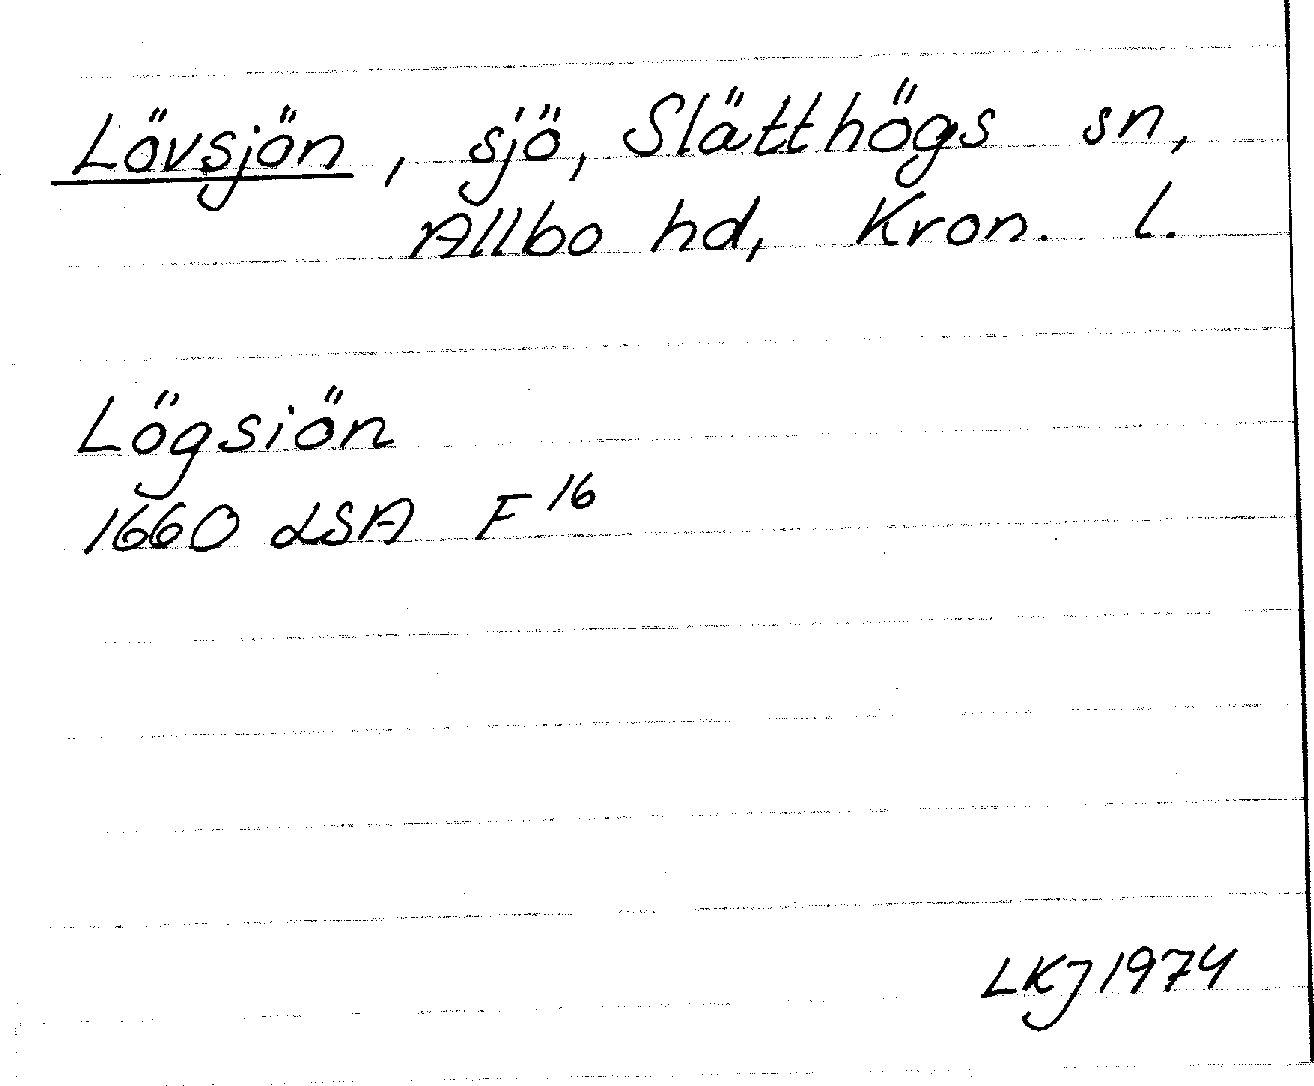 Lövsjön, sjö, Slätthögs sn,
Allbo hd, Kron. l.
Lögsiön
1660 LSA F 16
LKJ 1974